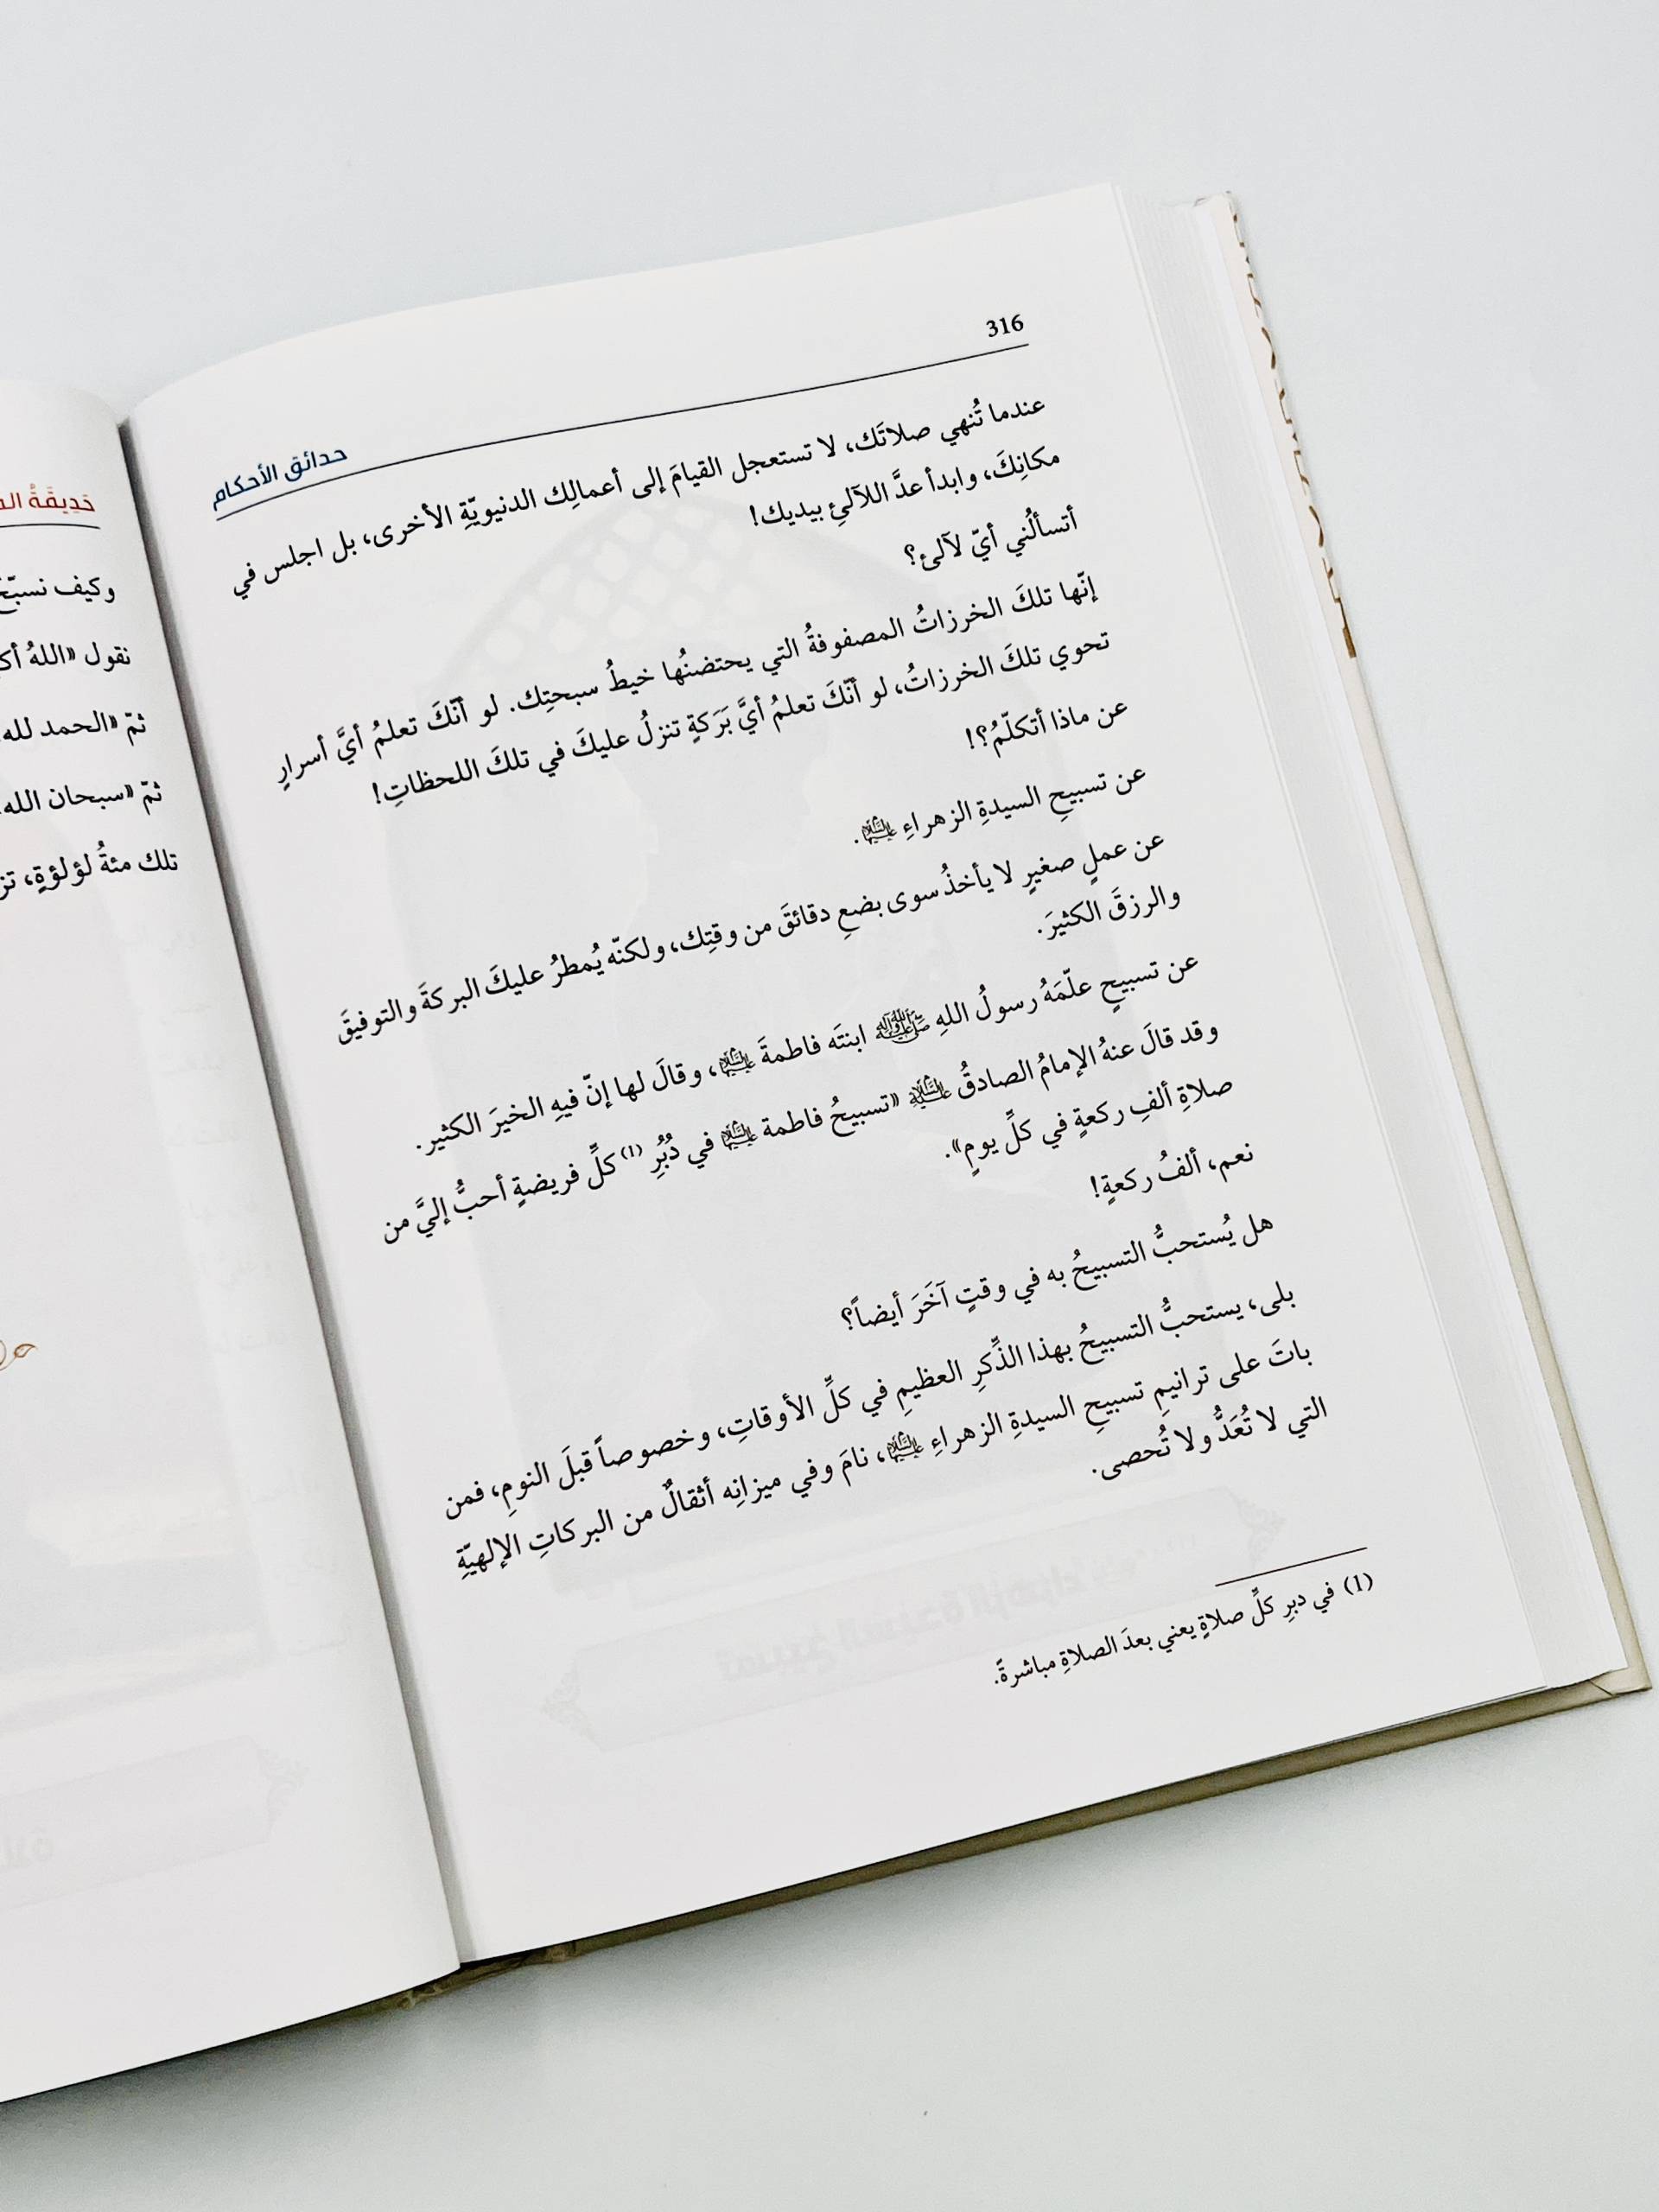 316
حدائق الأحكام
عندما تُنهي صلاتَك، لا تستعجل القيامَ إلى أعمالِك الدنيويّةِ الأخرى، بل اجلس في
مكانِكَ، وابدأ عدَّ اللآلئِ بيديك!
أتسألُني أيّ لآلئ؟
إنّها تلكَ الخرزاتُ المصفوفةُ التي يحتضنُها خيطُ سبحتِك. لو أنّكَ تعلمُ أيَّ أسرارٍ
تحوي تلكَ الخرزاتُ، لو أنّكَ تعلمُ أيَّ بَرَكةٍ تنزلُ عليكَ في تلكَ اللحظاتِ!
عن ماذا أتكلّمُ؟!
عن تسبيحِ السيدةِ الزهراءِ عليها السلام.
عن عملٍ صغيرٍ لا يأخذُ سوى بضعِ دقائقَ من وقتِك، ولكنّه يُمطرُ عليكَ البركةَ والتوفيقَ
والرزقَ الكثيرَ.
عن تسبيحٍ علّمَهُ رسولُ اللهِ ﷺ ابنتَه فاطمةَ عليها السلام، وقالَ لها إنّ فيهِ الخيرَ الكثير.
وقد قالَ عنهُ الإمامُ الصادقُ عليه السلام «تسبيحُ فاطمة عليها السلام في دُبُرِ (1) كلِّ فريضةٍ أحبُّ إليَّ من
صلاةِ ألفِ ركعةٍ في كلِّ يومٍ».
نعم، ألفُ ركعةٍ!
هل يُستحبُّ التسبيحُ به في وقتٍ آخَرَ أيضاً؟
بلى، يستحبُّ التسبيحُ بهذا الذِّكرِ العظيمِ في كلِّ الأوقاتِ، وخصوصاً قبلَ النومِ، فمن
باتَ على ترانيمِ تسبيحِ السيدةِ الزهراءِ عليها السلام، نامَ وفي ميزانِه أثقالٌ من البركاتِ الإلهيّةِ
التي لا تُعَدُّ ولا تُحصى.
(1) في دبرِ كلِّ صلاةٍ يعني بعدَ الصلاةِ مباشرةً.
حَدِيقَةُ
وكيف
نقول «اللهُ
ثمّ «الحمد لله
ثمّ «سبحان الله
تلك مئةُ لؤلؤةٍ،